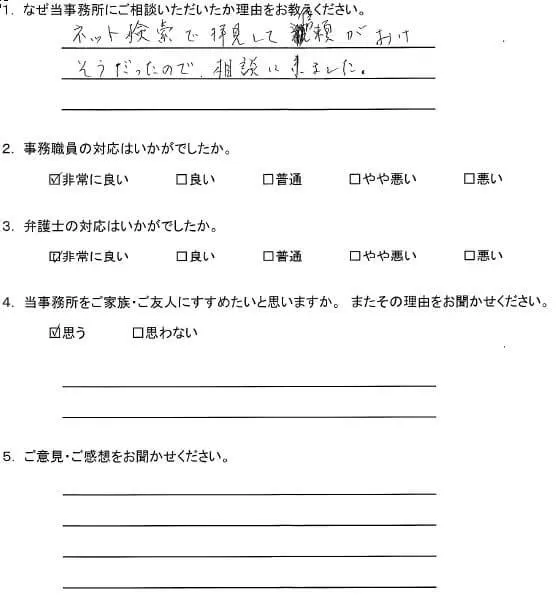 1. なぜ当事務所にご相談いただいたか理由をお教えください。
ネット検索で拝見して信頼がおけ
そうだったので、相談に来ました。
2. 事務職員の対応はいかがでしたか。
☑非常に良い □良い □普通 □やや悪い □悪い
3. 弁護士の対応はいかがでしたか。
☑非常に良い □良い □普通 □やや悪い □悪い
4. 当事務所をご家族・ご友人にすすめたいと思いますか。 またその理由をお聞かせください。
☑思う □思わない
5. ご意見・ご感想をお聞かせください。